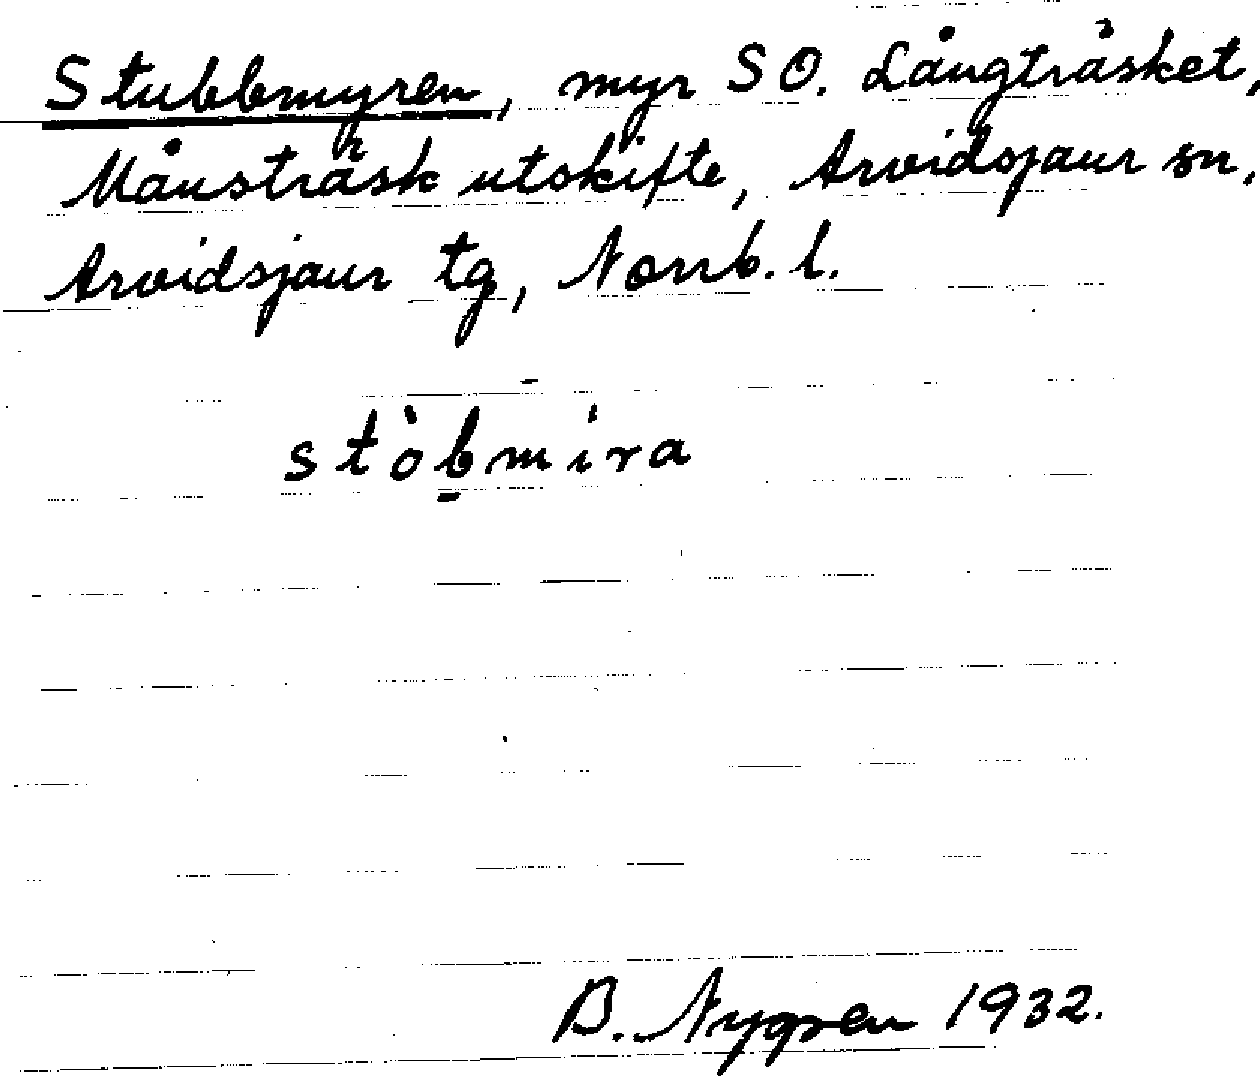 Stubbmyren, myr SO. Långträsket,
Månsträsk utskifte, Arvidsjaur sn,
Arvidsjaur tg, Norrb. l.
stòb̠mira
B. Nygren 1932.